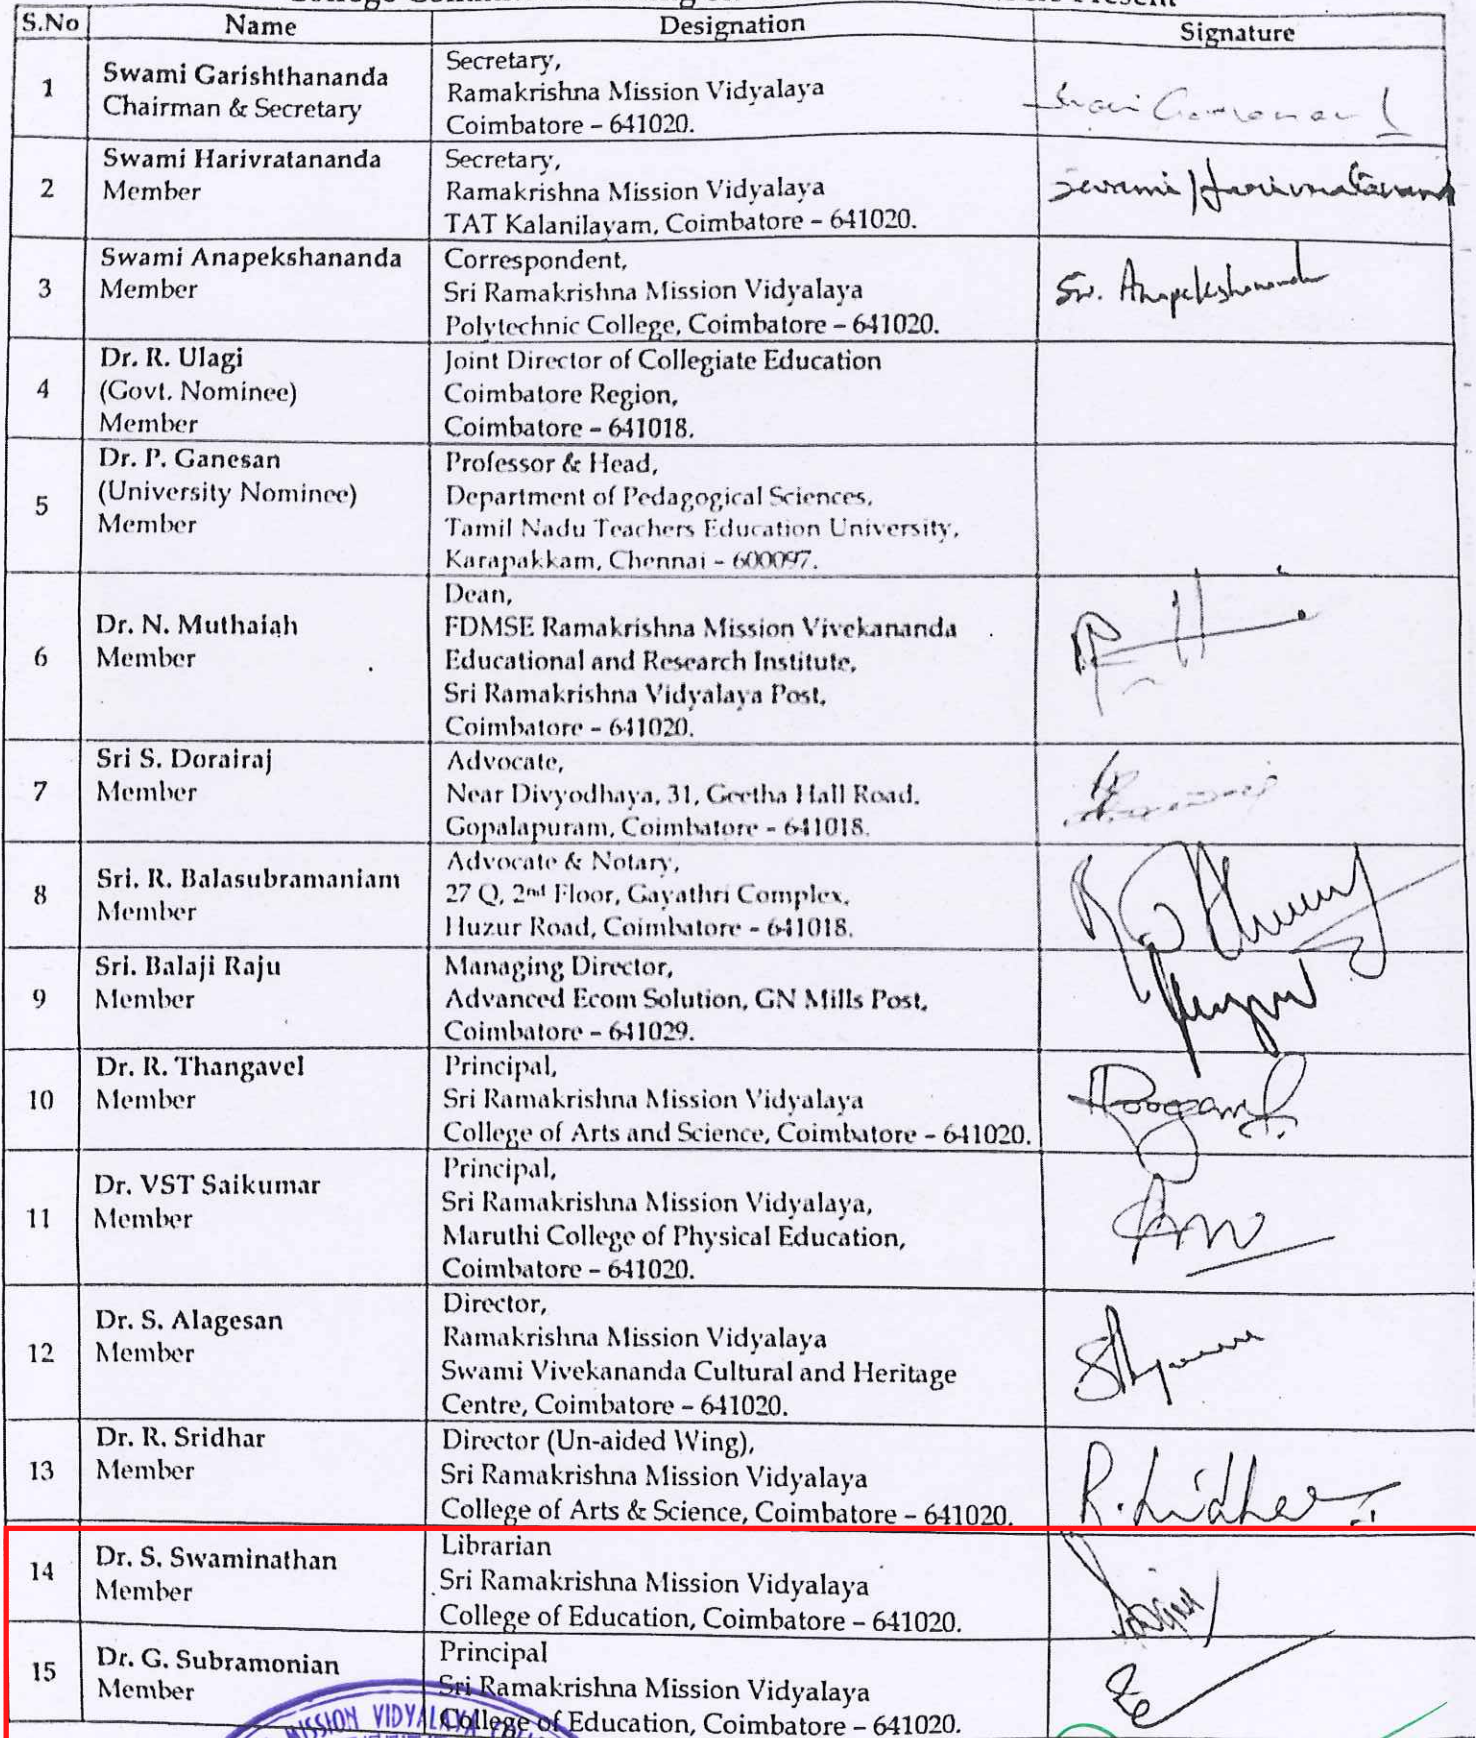 S.No Name Designation Signature
1 Swami Garishthananda
Chairman & Secretary
Secretary,
Ramakrishna Mission Vidyalaya
Coimbatore – 641020.
2 Swami Harivratananda
Member
Secretary,
Ramakrishna Mission Vidyalaya
TAT Kalanilayam, Coimbatore – 641020.
Swami Harivratanand
3 Swami Anapekshananda
Member
Correspondent,
Sri Ramakrishna Mission Vidyalaya
Polytechnic College, Coimbatore – 641020.
Sw. Anapekshananda
4 Dr. R. Ulagi
(Govt. Nominee)
Member
Joint Director of Collegiate Education
Coimbatore Region,
Coimbatore – 641018.
5 Dr. P. Ganesan
(University Nominee)
Member
Professor & Head,
Department of Pedagogical Sciences,
Tamil Nadu Teachers Education University,
Karapakkam, Chennai – 600097.
6 Dr. N. Muthaiah
Member
Dean,
FDMSE Ramakrishna Mission Vivekananda
Educational and Research Institute,
Sri Ramakrishna Vidyalaya Post,
Coimbatore – 641020.
7 Sri S. Dorairaj
Member
Advocate,
Near Divyodhaya, 31, Geetha Hall Road,
Gopalapuram, Coimbatore – 641018.
8 Sri. R. Balasubramaniam
Member
Advocate & Notary,
27 Q, 2nd Floor, Gayathri Complex,
Huzur Road, Coimbatore – 641018.
9 Sri. Balaji Raju
Member
Managing Director,
Advanced Ecom Solution, GN Mills Post,
Coimbatore – 641029.
10 Dr. R. Thangavel
Member
Principal,
Sri Ramakrishna Mission Vidyalaya
College of Arts and Science, Coimbatore – 641020.
11 Dr. VST Saikumar
Member
Principal,
Sri Ramakrishna Mission Vidyalaya,
Maruthi College of Physical Education,
Coimbatore – 641020.
12 Dr. S. Alagesan
Member
Director,
Ramakrishna Mission Vidyalaya
Swami Vivekananda Cultural and Heritage
Centre, Coimbatore – 641020.
13 Dr. R. Sridhar
Member
Director (Un-aided Wing),
Sri Ramakrishna Mission Vidyalaya
College of Arts & Science, Coimbatore – 641020.
14 Dr. S. Swaminathan
Member
Librarian
Sri Ramakrishna Mission Vidyalaya
College of Education, Coimbatore – 641020.
15 Dr. G. Subramonian
Member
Principal
Sri Ramakrishna Mission Vidyalaya
College of Education, Coimbatore – 641020.
MISSION VIDYALAYA